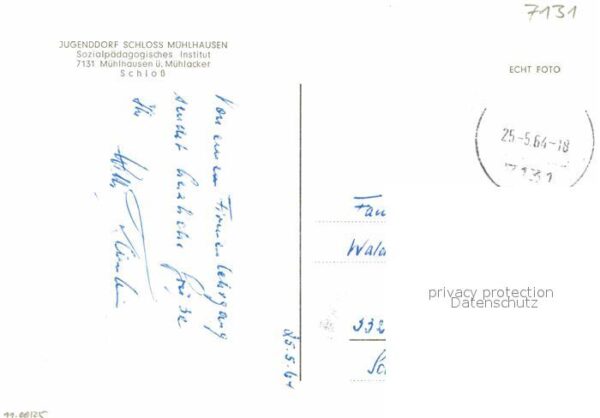 7131
JUGENDDORF SCHLOSS MÜHLHAUSEN
Sozialpädagogisches Institut
7131 Mühlhausen ü. Mühlacker
Schloß
ECHT FOTO
25.-5.64-18
7131
Von einem Firmenlehrgang
sendet herzliche Grüße
Ihr
Willy
25.5.64
Fam
Wald
332
privacy protection
Datenschutz